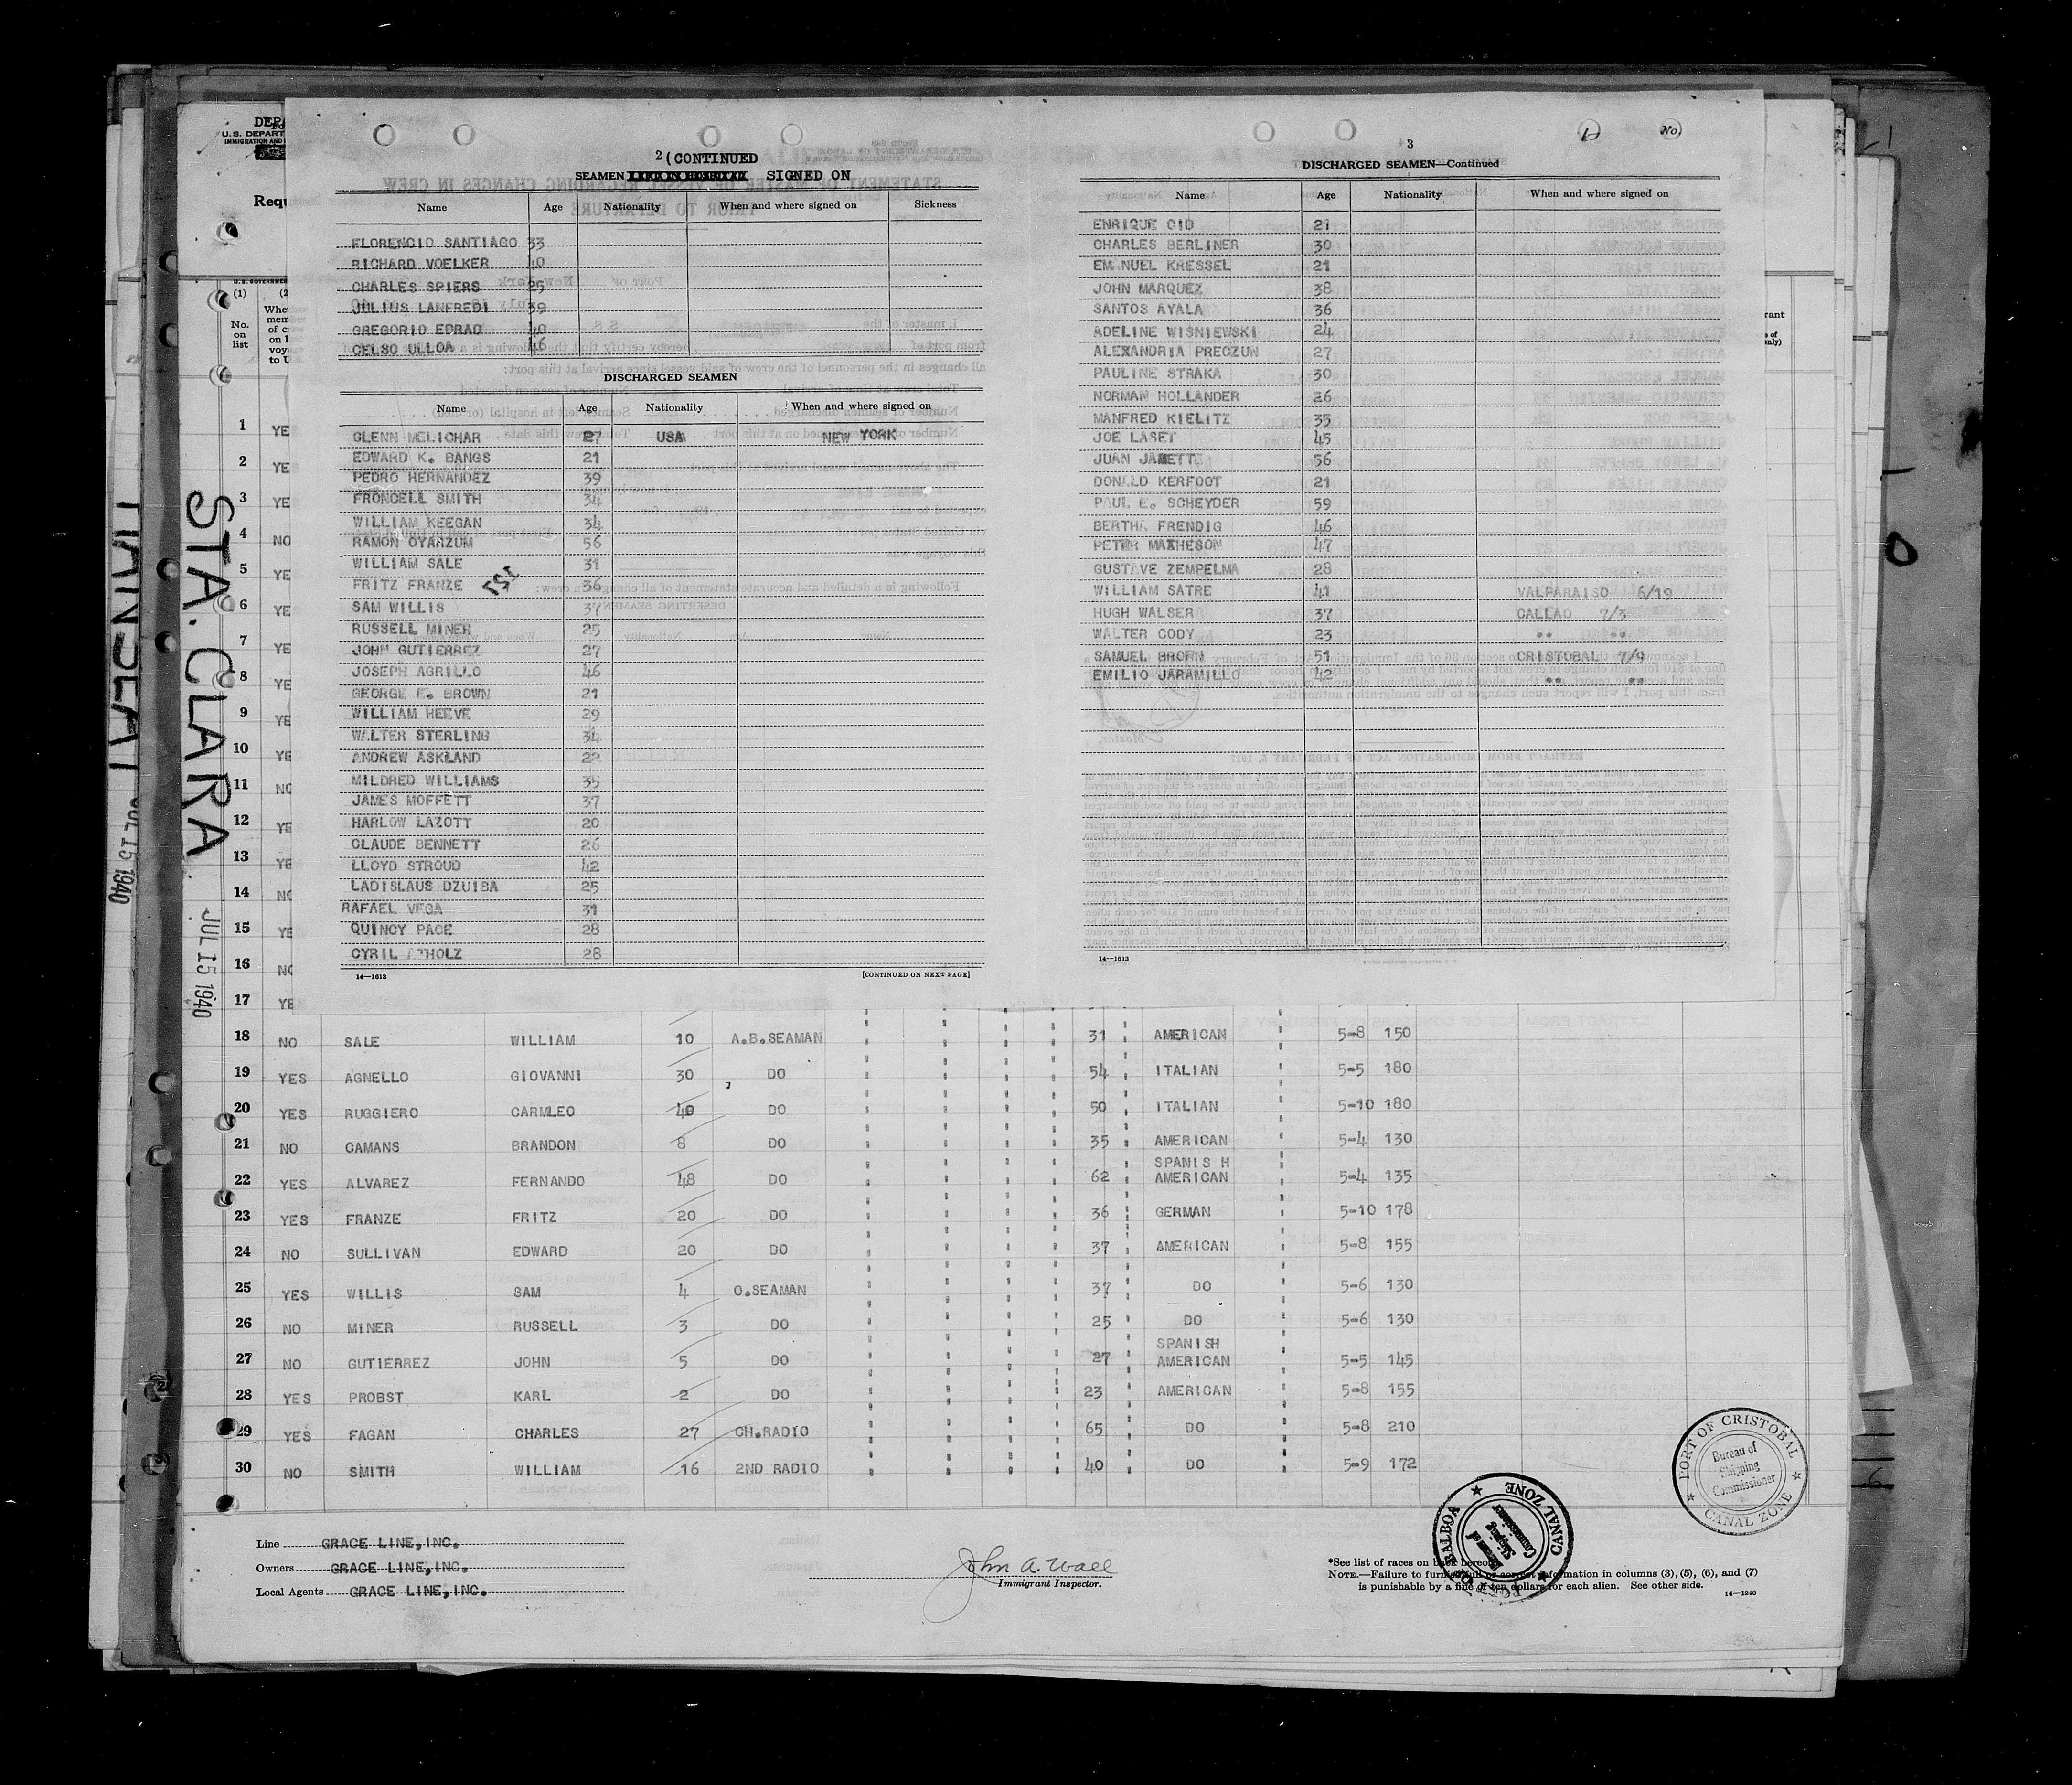 DEPA
U.S. DEPART
IMMIGRATION AND
Requ
U.S. GOVERNMEN
(1)
(2
No.
on
list
Whe
mem
of c
on l
voy
to U
2 (CONTINUED
SEAMEN SIGNED ON
Name Age Nationality When and where signed on Sickness
FLORENCIO SANTIAGO 33
RICHARD VOELKER 40
CHARLES SPIERS 25
JULIUS LANFREDI 39
GREGORIO EDRAD 40
CELSO ULLOA 46
DISCHARGED SEAMEN
Name Age Nationality When and where signed on
GLENN MELICHAR 27 USA NEW YORK
EDWARD K. BANGS 21
PEDRO HERNANDEZ 39
FRONCELL SMITH 34
WILLIAM KEEGAN 34
RAMON OYARZUM 56
WILLIAM SALE 31
FRITZ FRANZE 36
151
SAM WILLIS 37
RUSSELL MINER 25
JOHN GUTIERREZ 27
JOSEPH AGRILLO 46
GEORGE E. BROWN 21
WILLIAM HEEVE 29
WALTER STERLING 34
ANDREW ASKLAND 22
MILDRED WILLIAMS 35
JAMES MOFFETT 37
HARLOW LAZOTT 20
CLAUDE BENNETT 26
LLOYD STROUD 42
LADISLAUS DZUIBA 25
RAFAEL VEGA 31
QUINCY PACE 28
CYRIL 28
14—1613 [CONTINUED ON NEXT PAGE]
3
DISCHARGED SEAMEN—Continued
Name Age Nationality When and where signed on
ENRIQUE CID 21
CHARLES BERLINER 30
EMANUEL KRESSEL 21
JOHN MARQUEZ 38
SANTOS AYALA 36
ADELINE WISNIEWSKI 24
ALEXANDRIA PRECZUN 27
PAULINE STRAKA 30
NORMAN HOLLANDER 26
MANFRED KIELITZ 35
JOE LASET 45
JUAN 56
DONALD KERFOOT 21
PAUL E. SCHEYDER 59
BERTHA FRENDIG 46
PETER MATHESON 47
GUSTAVE ZEMPELMA 28
WILLIAM SATRE 41 VALPARAISO 6/19
HUGH WALSER 37 CALLAO 7/3
WALTER CODY 23 " "
SAMUEL BROWN 51 CRISTOBAL 7/9
EMILIO JARAMILLO 42 " "
14—1613
1 YE
2 YE
3 YE
4 NO
5 YE
6 YE
7 YE
8 YE
9 YE
10 YE
11 NO
12 YE
13 YE
14 NO
15 YE
16 NO
17 YE
18 NO SALE WILLIAM 10 A.B.SEAMAN 31 AMERICAN 5-8 150
19 YES AGNELLO GIOVANNI 30 DO 54 ITALIAN 5-5 180
20 YES RUGGIERO CARMLEO 40 DO 50 ITALIAN 5-10 180
21 NO CAMANS BRANDON 8 DO 35 AMERICAN 5-4 130
22 YES ALVAREZ FERNANDO 48 DO 62 SPANISH AMERICAN 5-4 135
23 YES FRANZE FRITZ 20 DO 36 GERMAN 5-10 178
24 NO SULLIVAN EDWARD 20 DO 37 AMERICAN 5-8 155
25 YES WILLIS SAM 4 O.SEAMAN 37 DO 5-6 130
26 NO MINER RUSSELL 3 DO 25 DO 5-6 130
27 NO GUTIERREZ JOHN 5 DO 27 SPANISH AMERICAN 5-5 145
28 YES PROBST KARL 2 DO 23 AMERICAN 5-8 155
29 YES FAGAN CHARLES 27 CH.RADIO 65 DO 5-8 210
30 NO SMITH WILLIAM 16 2ND RADIO 40 DO 5-9 172
Line GRACE LINE,INC.
Owners GRACE LINE,INC.
Local Agents GRACE LINE,INC.
John A. Wall
Immigrant Inspector.
*See list of races on back hereof.
NOTE.—Failure to furnish full or correct information in columns (3), (5), (6), and (7)
is punishable by a fine of ten dollars for each alien. See other side.
14—1240
PORT OF CRISTOBAL
Bureau of
Shipping
Commissioner
CANAL ZONE
PORT OF BALBOA
Bureau of
Shipping
Commissioner
CANAL ZONE
STA. CLARA
JUL 15 1940
JUL 15 1940